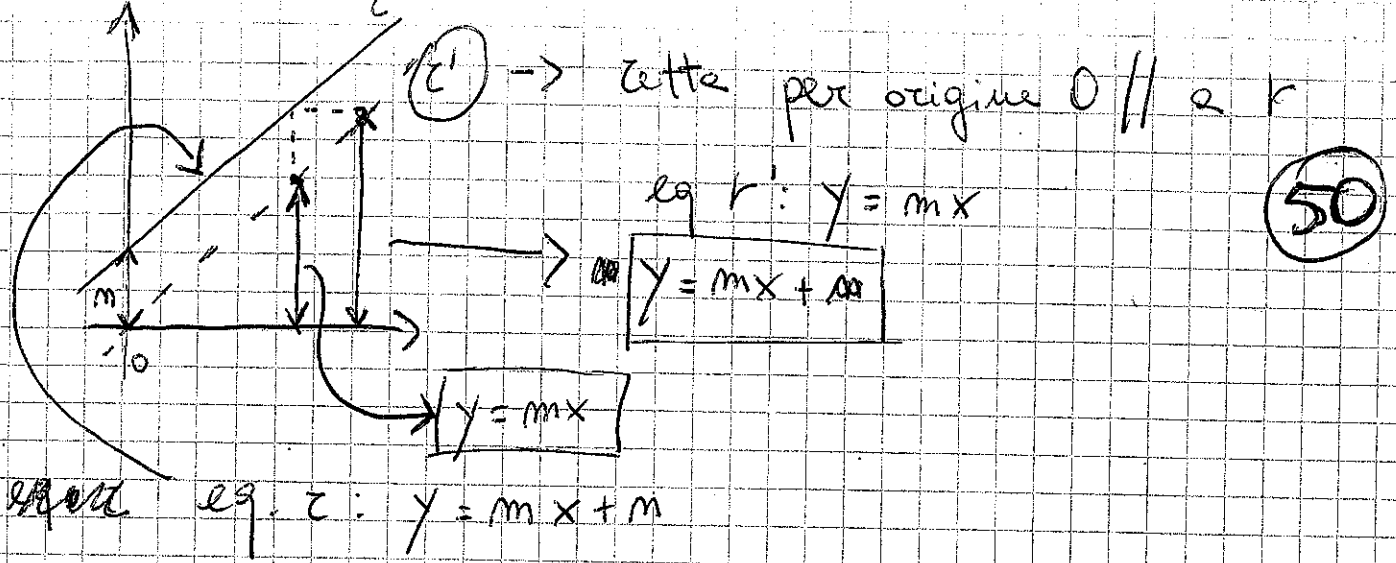 r
r' -> retta per origine O // a r
eq r': y = mx
50
n
y = mx + n
O
y = mx
eq. r: y = mx + n